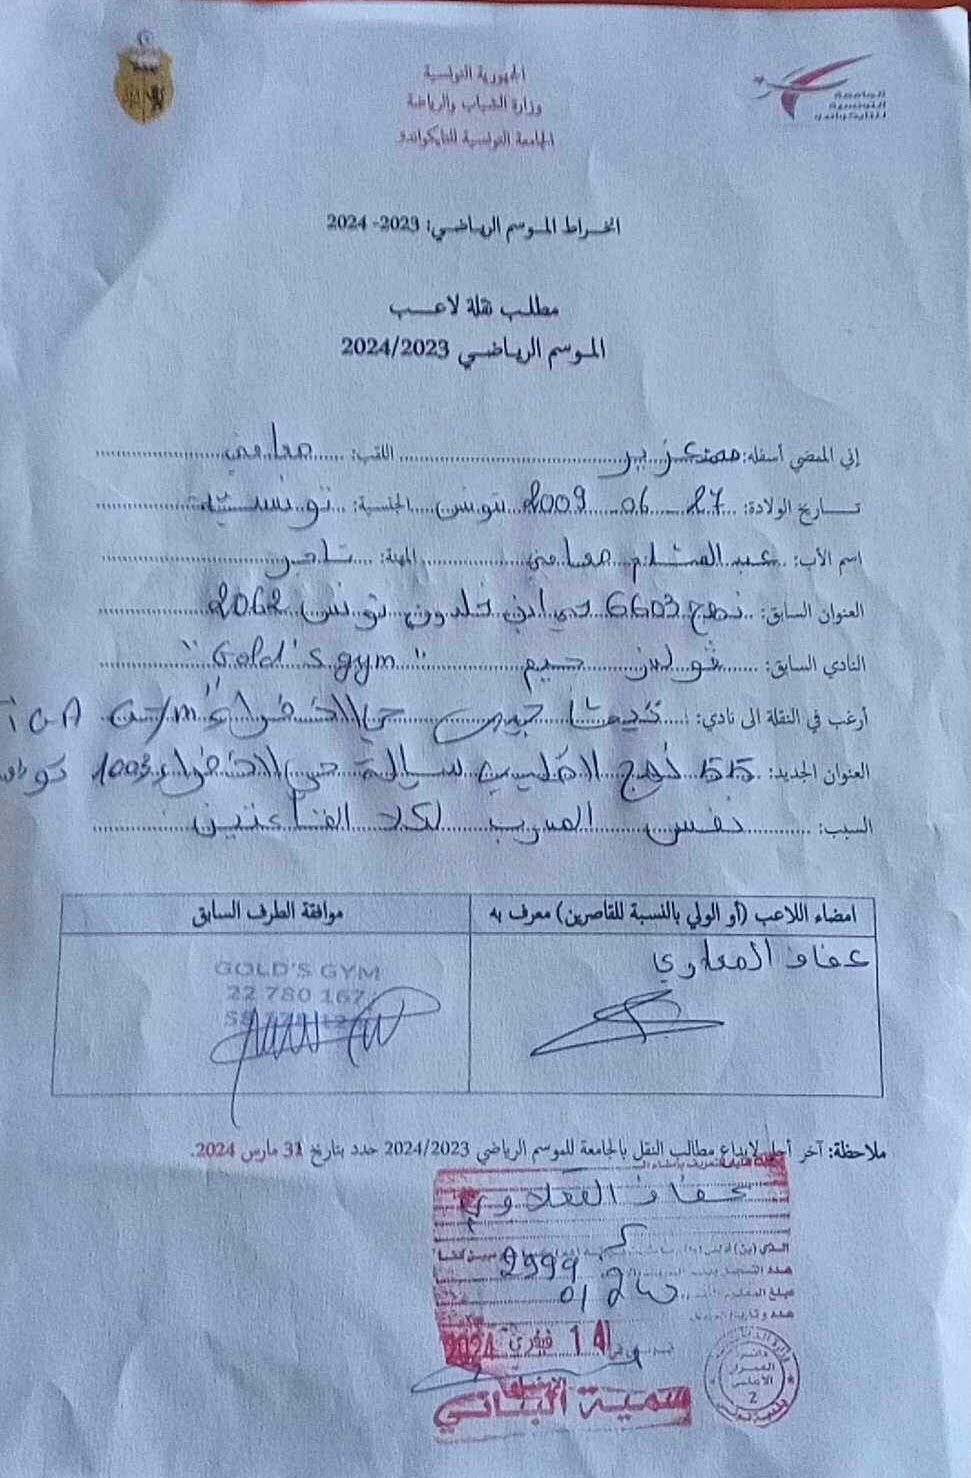 الجمهورية التونسية
وزارة الشباب والرياضة
الجامعة التونسية للتايكواندو
الجامعة
التونسية
للتايكواندو
انخراط الموسم الرياضي: 2023- 2024
مطلب نقلة لاعب
الموسم الرياضي 2024/2023
إني الممضي أسفله: محمد عزيز اللقب:
تاريخ الولادة: 27 06 2009 تونس الجنسية: تونسية
اسم الأب: عبد السلام المهنة: تاجر
العنوان السابق: نهج 6603 حي ابن خلدون تونس 2062
النادي السابق: قولدز جيم "Gold's gym"
أرغب في النقلة الى نادي: حي الخضراء
العنوان الجديد: نهج الطيب سيالة حي الخضراء 1003
السبب: نفس المدرب لكلا القاعتين
امضاء اللاعب (أو الولي بالنسبة للقاصرين) معرف به
موافقة الطرف السابق
عفاف
GOLD'S GYM
22 780 167
ملاحظة: آخر أجل لإيداع مطالب النقل بالجامعة للموسم الرياضي 2024/2023 حدد بتاريخ 31 مارس 2024.
عفاف
2999
14 فيفري 2024
سمية البناني